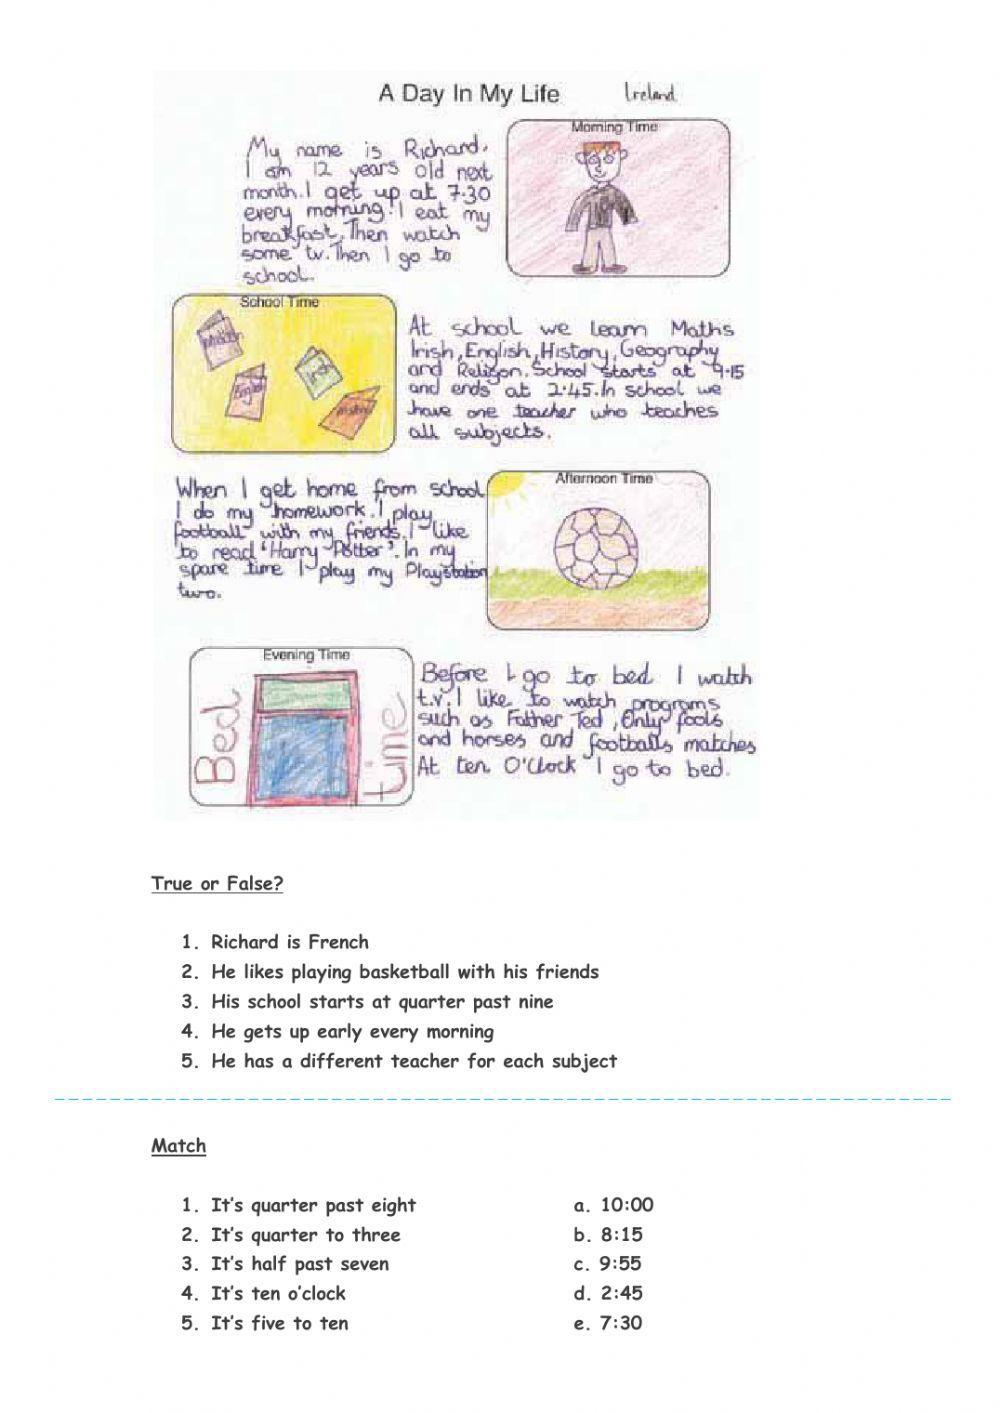 A Day In My Life Ireland
Morning Time
My name is Richard.
I am 12 years old next
month. I get up at 7.30
every morning. I eat my
breakfast. Then watch
some tv. Then I go to
school.
School Time
English
Irish
At school we learn Maths
Irish, English, History, Geography
and Religon. School starts at 9.15
and ends at 2.45. In school we
have one teacher who teaches
all subjects.
Afternoon Time
When I get home from school
I do my homework. I play
football with my friends. I like
to read 'Harry Potter'. In my
spare time I play my Playstation
two.
Evening Time
Bed time
Before I go to bed I watch
t.v. I like to watch programs
such as Father Ted, Only fools
and horses and footballs matches
At ten O'Clock I go to bed.
True or False?
1. Richard is French
2. He likes playing basketball with his friends
3. His school starts at quarter past nine
4. He gets up early every morning
5. He has a different teacher for each subject
Match
1. It's quarter past eight a. 10:00
2. It's quarter to three b. 8:15
3. It's half past seven c. 9:55
4. It's ten o'clock d. 2:45
5. It's five to ten e. 7:30